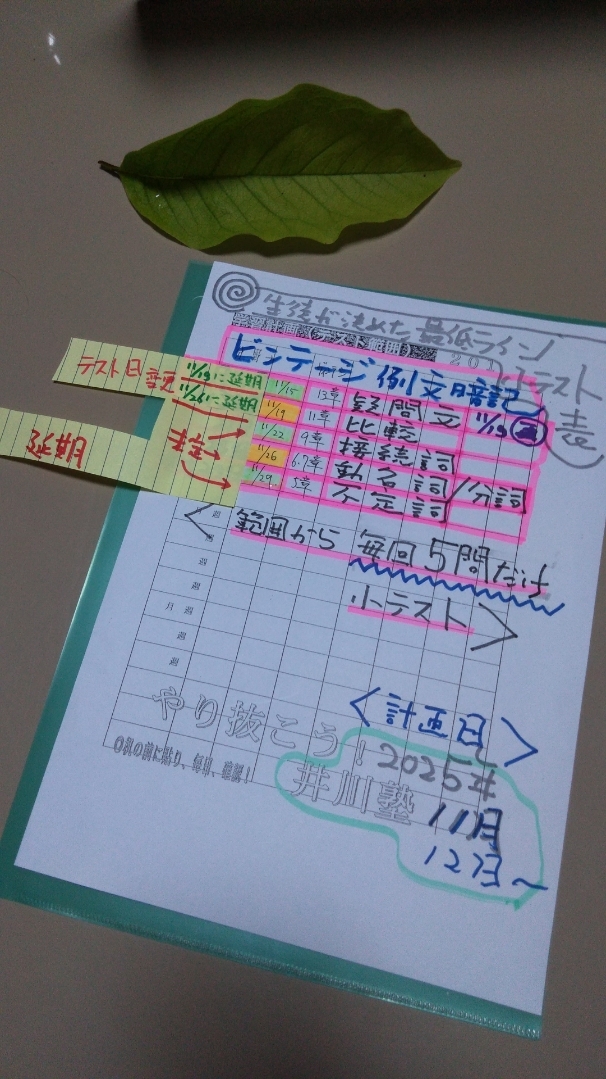 生徒が決めた最低ライン
小テスト
表
ビンテージ例文暗記
テスト日
11/19に延期
11/15 13章 疑問文 11/19
11/19 11章 比較
11/22 9章 接続詞
11/26 6.7章 動名詞/分詞
11/29 5章 不定詞
延期
<範囲から 毎回5問だけ
小テスト>
週
週
週
月 週
週
週
やり抜こう!
<計画日>
井川塾
2025年
11月
12日~